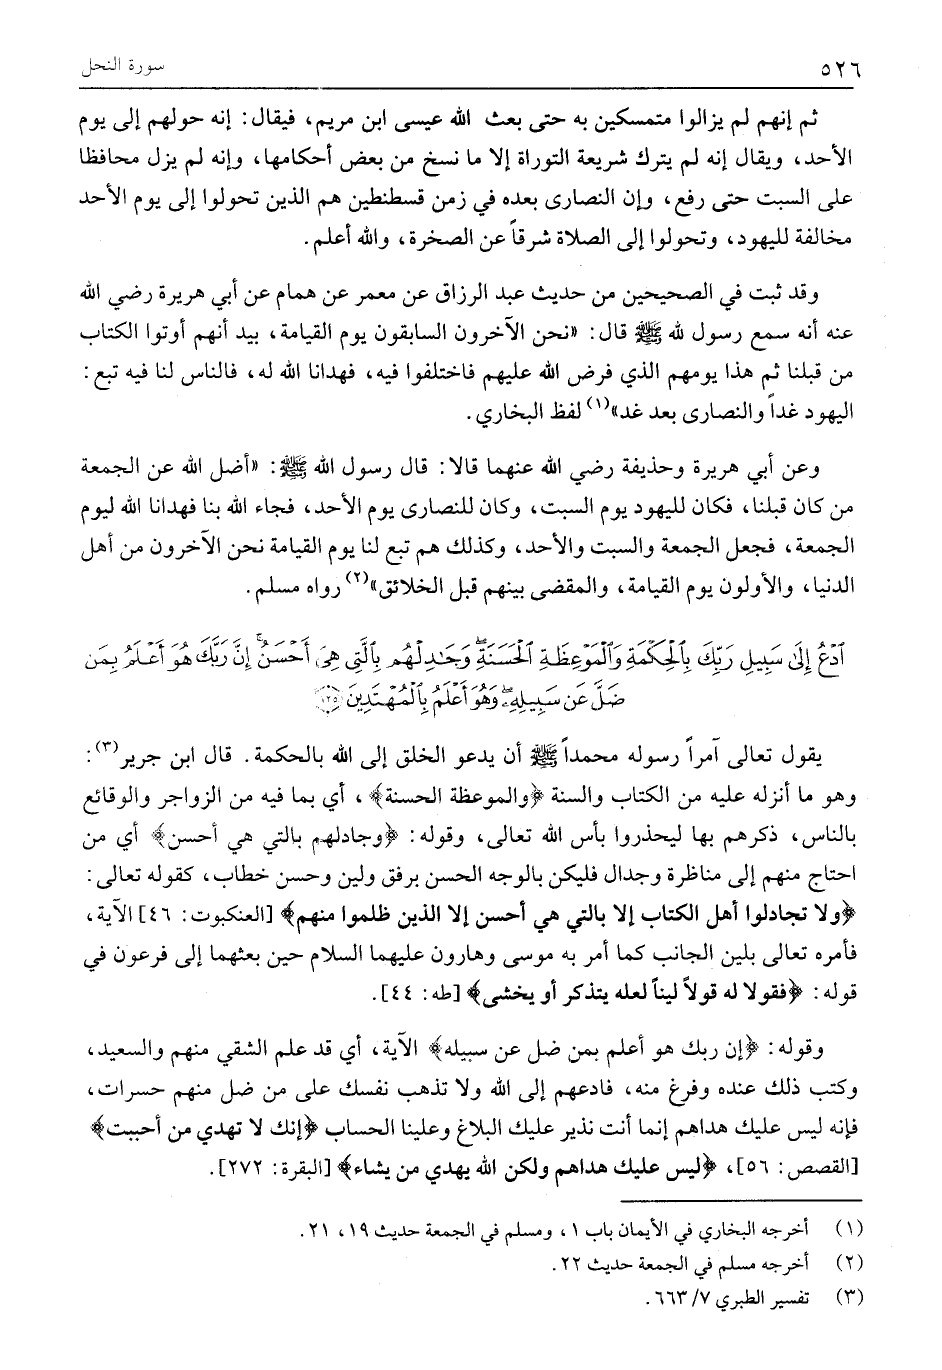 ٥٢٦ سورة النحل
ثم إنهم لم يزالوا متمسكين به حتى بعث الله عيسى ابن مريم، فيقال: إنه حولهم إلى يوم
الأحد، ويقال إنه لم يترك شريعة التوراة إلا ما نسخ من بعض أحكامها، وإنه لم يزل محافظا
على السبت حتى رفع، وإن النصارى بعده في زمن قسطنطين هم الذين تحولوا إلى يوم الأحد
مخالفة لليهود، وتحولوا إلى الصلاة شرقاً عن الصخرة، والله أعلم.
وقد ثبت في الصحيحين من حديث عبد الرزاق عن معمر عن همام عن أبي هريرة رضي الله
عنه أنه سمع رسول لله ﷺ قال: «نحن الآخرون السابقون يوم القيامة، بيد أنهم أوتوا الكتاب
من قبلنا ثم هذا يومهم الذي فرض الله عليهم فاختلفوا فيه، فهدانا الله له، فالناس لنا فيه تبع:
اليهود غداً والنصارى بعد غد»(١) لفظ البخاري.
وعن أبي هريرة وحذيفة رضي الله عنهما قالا: قال رسول الله ﷺ: «أضل الله عن الجمعة
من كان قبلنا، فكان لليهود يوم السبت، وكان للنصارى يوم الأحد، فجاء الله بنا فهدانا الله ليوم
الجمعة، فجعل الجمعة والسبت والأحد، وكذلك هم تبع لنا يوم القيامة نحن الآخرون من أهل
الدنيا، والأولون يوم القيامة، والمقضى بينهم قبل الخلائق»(٢) رواه مسلم.
ٱدْعُ إِلَىٰ سَبِيلِ رَبِّكَ بِٱلْحِكْمَةِ وَٱلْمَوْعِظَةِ ٱلْحَسَنَةِ ۖ وَجَٰدِلْهُم بِٱلَّتِى هِىَ أَحْسَنُ ۚ إِنَّ رَبَّكَ هُوَ أَعْلَمُ بِمَن
ضَلَّ عَن سَبِيلِهِۦ ۖ وَهُوَ أَعْلَمُ بِٱلْمُهْتَدِينَ ﴿١٢٥﴾
يقول تعالى آمراً رسوله محمداً ﷺ أن يدعو الخلق إلى الله بالحكمة. قال ابن جرير(٣):
وهو ما أنزله عليه من الكتاب والسنة ﴿والموعظة الحسنة﴾، أي بما فيه من الزواجر والوقائع
بالناس، ذكرهم بها ليحذروا بأس الله تعالى، وقوله: ﴿وجادلهم بالتي هي أحسن﴾ أي من
احتاج منهم إلى مناظرة وجدال فليكن بالوجه الحسن برفق ولين وحسن خطاب، كقوله تعالى:
﴿ولا تجادلوا أهل الكتاب إلا بالتي هي أحسن إلا الذين ظلموا منهم﴾ [العنكبوت: ٤٦] الآية،
فأمره تعالى بلين الجانب كما أمر به موسى وهارون عليهما السلام حين بعثهما إلى فرعون في
قوله: ﴿فقولا له قولاً ليناً لعله يتذكر أو يخشى﴾ [طه: ٤٤].
وقوله: ﴿إن ربك هو أعلم بمن ضل عن سبيله﴾ الآية، أي قد علم الشقي منهم والسعيد،
وكتب ذلك عنده وفرغ منه، فادعهم إلى الله ولا تذهب نفسك على من ضل منهم حسرات،
فإنه ليس عليك هداهم إنما أنت نذير عليك البلاغ وعلينا الحساب ﴿إنك لا تهدي من أحببت﴾
[القصص: ٥٦]، ﴿ليس عليك هداهم ولكن الله يهدي من يشاء﴾ [البقرة: ٢٧٢].
(١) أخرجه البخاري في الأيمان باب ١، ومسلم في الجمعة حديث ١٩، ٢١.
(٢) أخرجه مسلم في الجمعة حديث ٢٢.
(٣) تفسير الطبري ٧/ ٦٦٣.